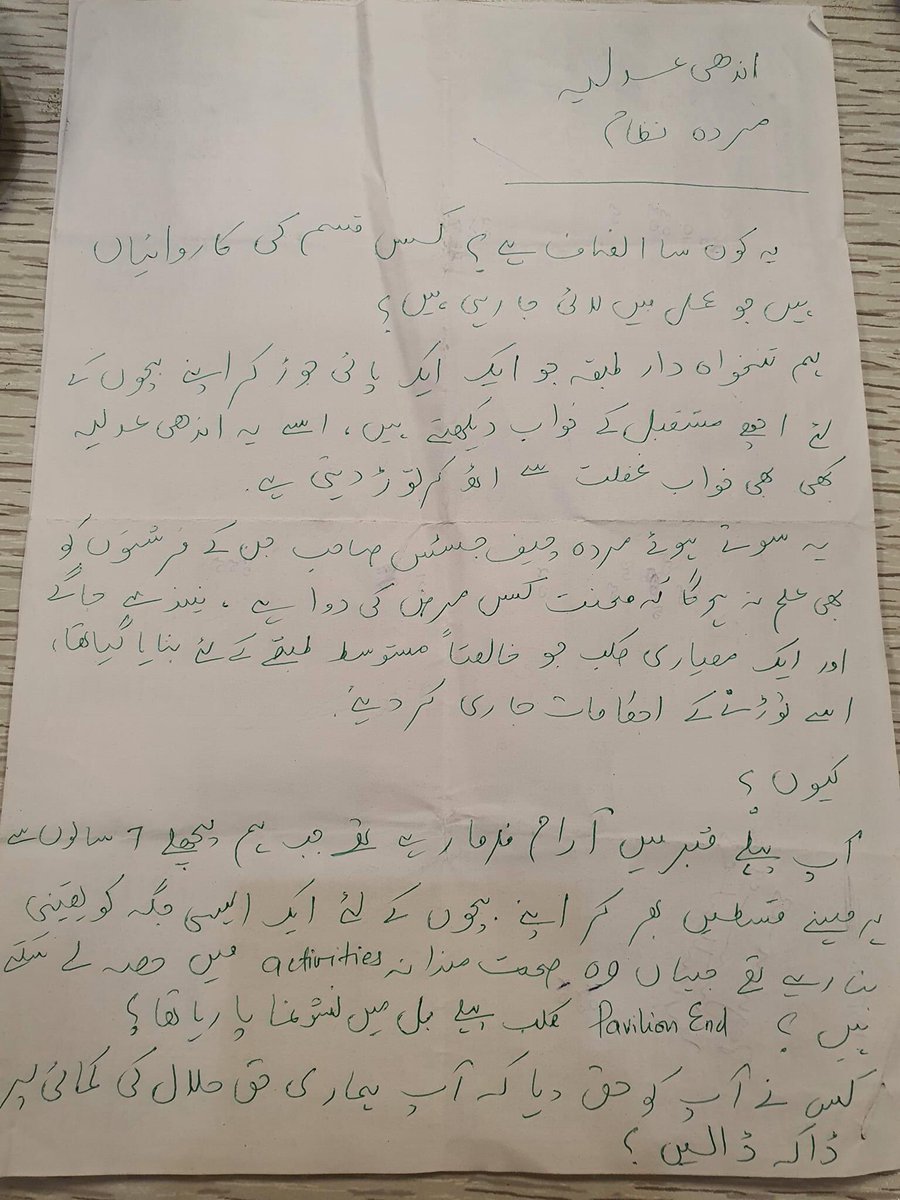 اندھی عدلیہ
مردہ نظام
یہ کون سا انصاف ہے؟ کس قسم کی کاروائیاں
ہیں جو عمل میں لائی جا رہی ہیں؟
ہم تنخواہ دار طبقہ جو ایک ایک پائی جوڑ کر اپنے بچوں کے
لئے اچھے مستقبل کے خواب دیکھتے ہیں، اسے یہ اندھی عدلیہ
کبھی بھی خواب غفلت سے اٹھ کر توڑ دیتی ہے۔
یہ سوتے ہوئے مردہ چیف جسٹس صاحب جن کے فرشتوں کو
بھی علم نہ ہوگا کہ محنت کس مرض کی دوا ہے، نیند سے جاگے
اور ایک معیاری کلب جو خالصتاً متوسط طبقے کے لئے بنایا گیا تھا،
اسے توڑنے کے احکامات جاری کر دیئے۔
کیوں؟
آپ پہلے قبر میں آرام فرما رہے تھے جب ہم پچھلے 7 سالوں سے
ہر مہینے قسطیں بھر کر اپنے بچوں کے لئے ایک ایسی جگہ کو یقینی
بنا رہے تھے جہاں وہ صحت مندانہ activities میں حصہ لے سکتے
ہیں؟ Pavilion End کلب پہلے بل میں نشونما پا رہا تھا؟
کس نے آپ کو حق دیا کہ آپ ہماری حق حلال کی کمائی پر
ڈاکہ ڈالیں؟